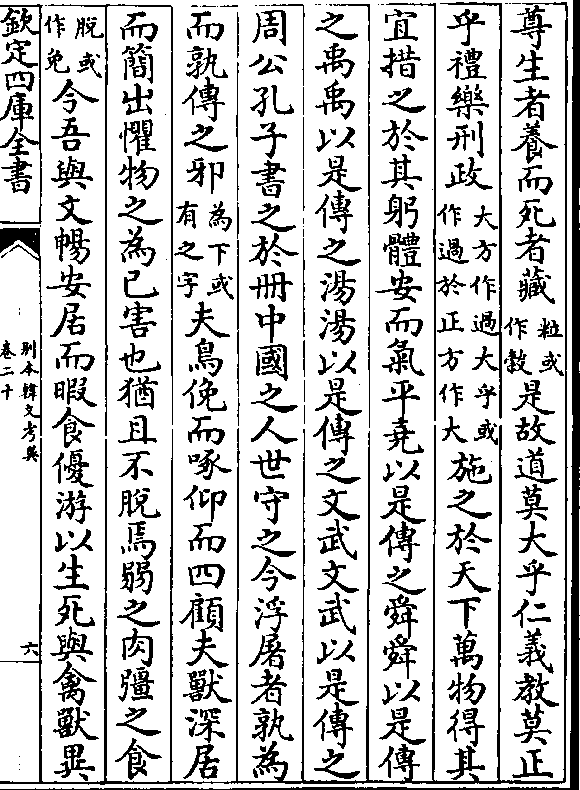 尊生者養而死者藏粒或作穀是故道莫大乎仁義教莫正
乎禮樂刑政大方作過大乎或作過於正方作大施之於天下萬物得其
宜措之於其躬體安而氣平堯以是傳之舜舜以是傳
之禹禹以是傳之湯湯以是傳之文武文武以是傳之
周公孔子書之於冊中國之人世守之今浮屠者孰為
而孰傳之邪為下或有之字夫鳥俛而啄仰而四顧夫獸深居
而簡出懼物之為已害也猶且不脫焉弱之肉彊之食
脫或作免今吾與文暢安居而暇食優游以生死與禽獸異
欽定四庫全書
別本韓文考異
卷二十
六